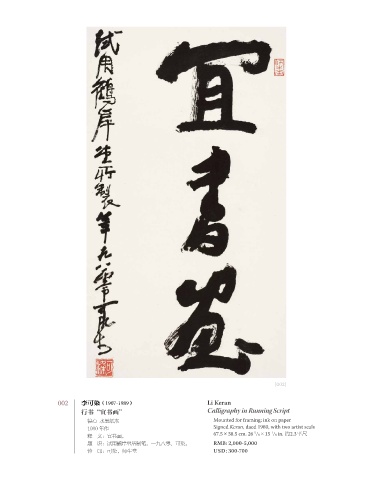 宜書畫
試用鶴岸先所製筆 九八零 可染
002
李可染（1907-1989）
行书 “宜书画”
镜心 水墨纸本
1980年作
释 文：宜书画。
Li Keran
Calligraphy in Running Script
Mounted for framing; ink on paper
Signed Keran, dated 1980, with two artist seals
67.5 × 38.5 cm. 26 5/8 × 15 1/8 in. 约2.3平尺
RMB: 2,000-5,000
USD: 300-700